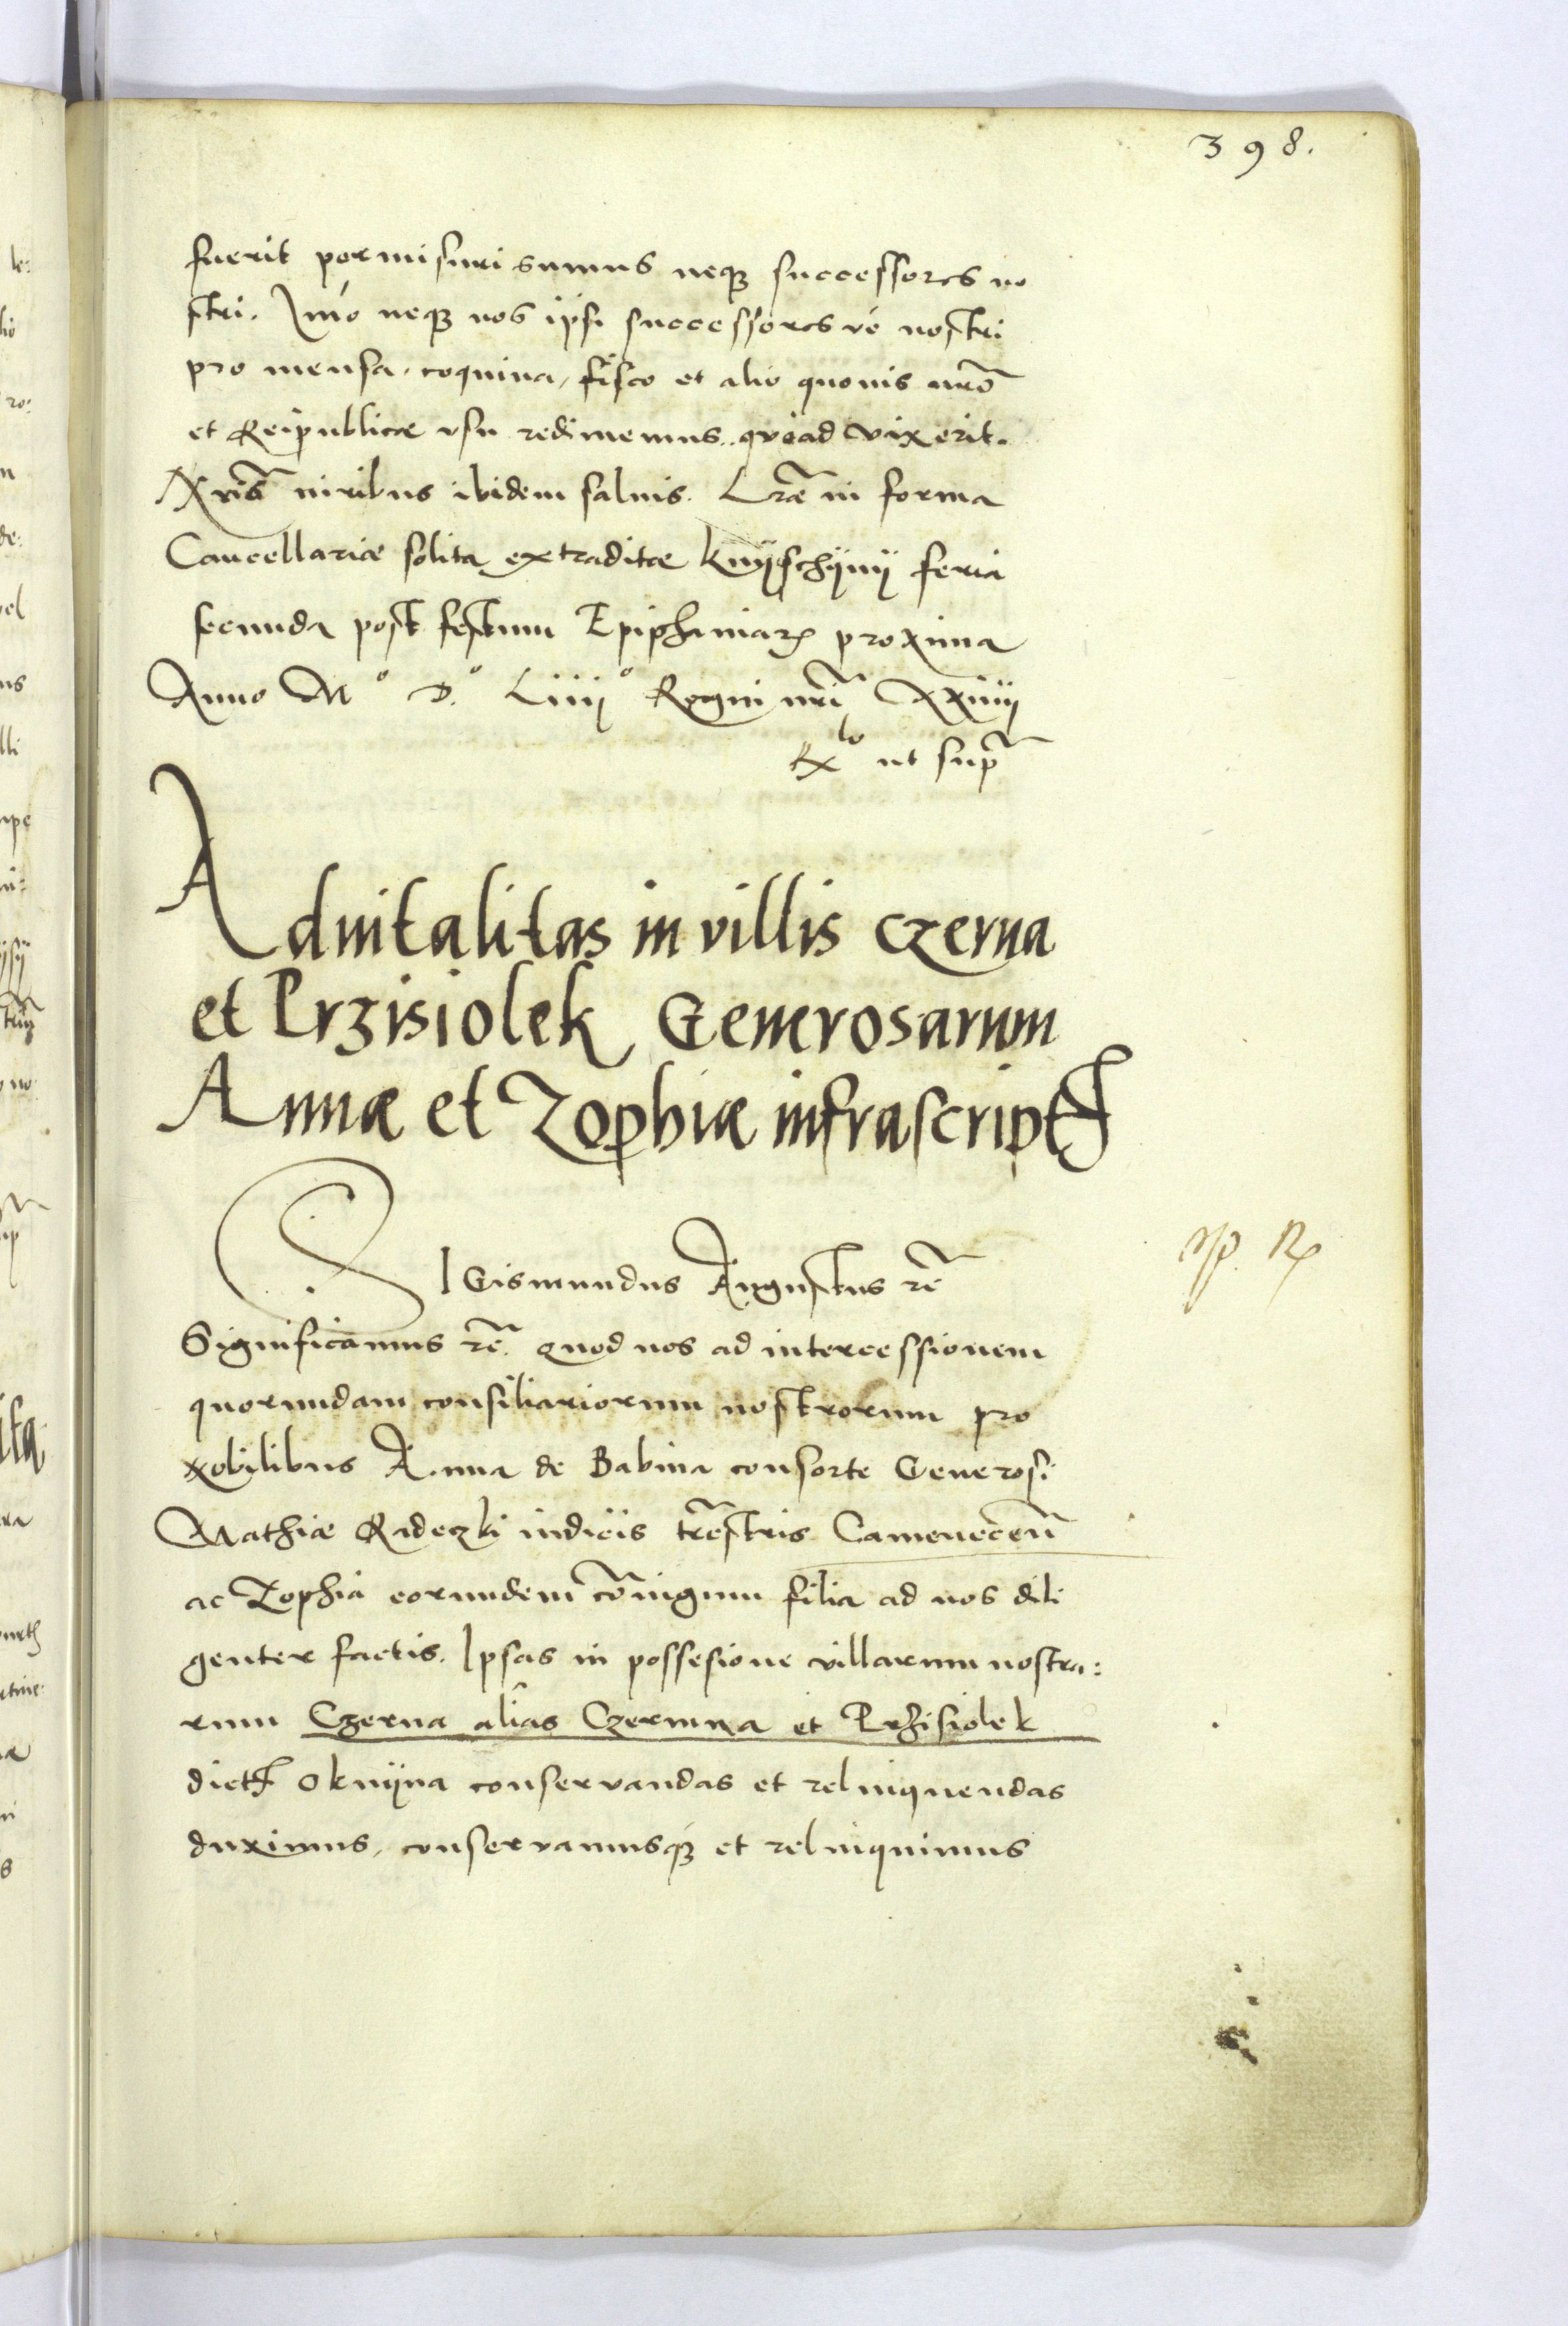 398.
fuerit permisuri sumus neqz successores no
stri. Imo neqz nos ipsi successores ve nostri
pro mensa, coquina, fisco et alio quovis nro
et Reipublicæ usu redimemus. quoad vixerit.
iuribus ibidem salvis. Lræ in forma
Cancellariæ solita extraditæ Knÿschÿnÿ feria
secunda post festum Epiphaniarꝝ proxima
Anno Mᵒ Dᵒ Liiijᵒ Regni nri XXiiij
ut supra
Advitalitas in villis Czerna
et Przisiolek Generosarum
Annæ et Zophiæ infrascript
SIGismundus Augustus rē
Significamus rē. Quod nos ad intercessionem
quorundam consiliariorum nostrorum pro
Nobilibus Anna de Babina consorte Generosi
Mathiæ Radeczki iudicis trestris Cameneceñ
ac Zophia eorundem cōiugum filia ad nos dili
genter factis. Ipsas in possesione villarum nostra:
rum Czerna alias Czermna et Przisiolek
dict Oknÿna conservandas et relinquendas
duximus, conservamusqz et relinquimus